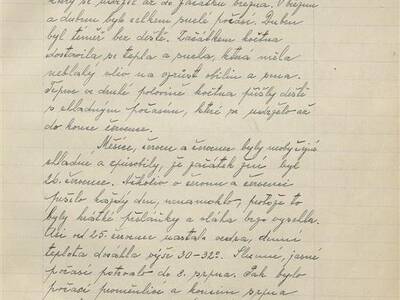 který se udržel až do začátku března. V březnu
a dubnu bylo celkem suché počasí. Duben
byl téměř bez deště. Začátkem května
dostavila se tepla a sucha, která měla
neblahý vliv na vzrůst obilin a sena.
Teprve v druhé polovině května přišly deště
s chladným počasím, které se udrželo až
do konce června.
Měsíc, červen a červenec byly
chladné a způsobily, že začátek žní byl
26. července. Ačkoliv v červnu a červenci
pršelo každý den, nenamoklo, protože to
byly krátké přeháňky a vláha brzo vyschla.
Až od 25. července nastala vedra, denní
teplota dosáhla výše 30-32°. Slunné, jasné
počasí potrvalo do 8. srpna. Pak bylo
počasí proměnlivé a koncem srpna